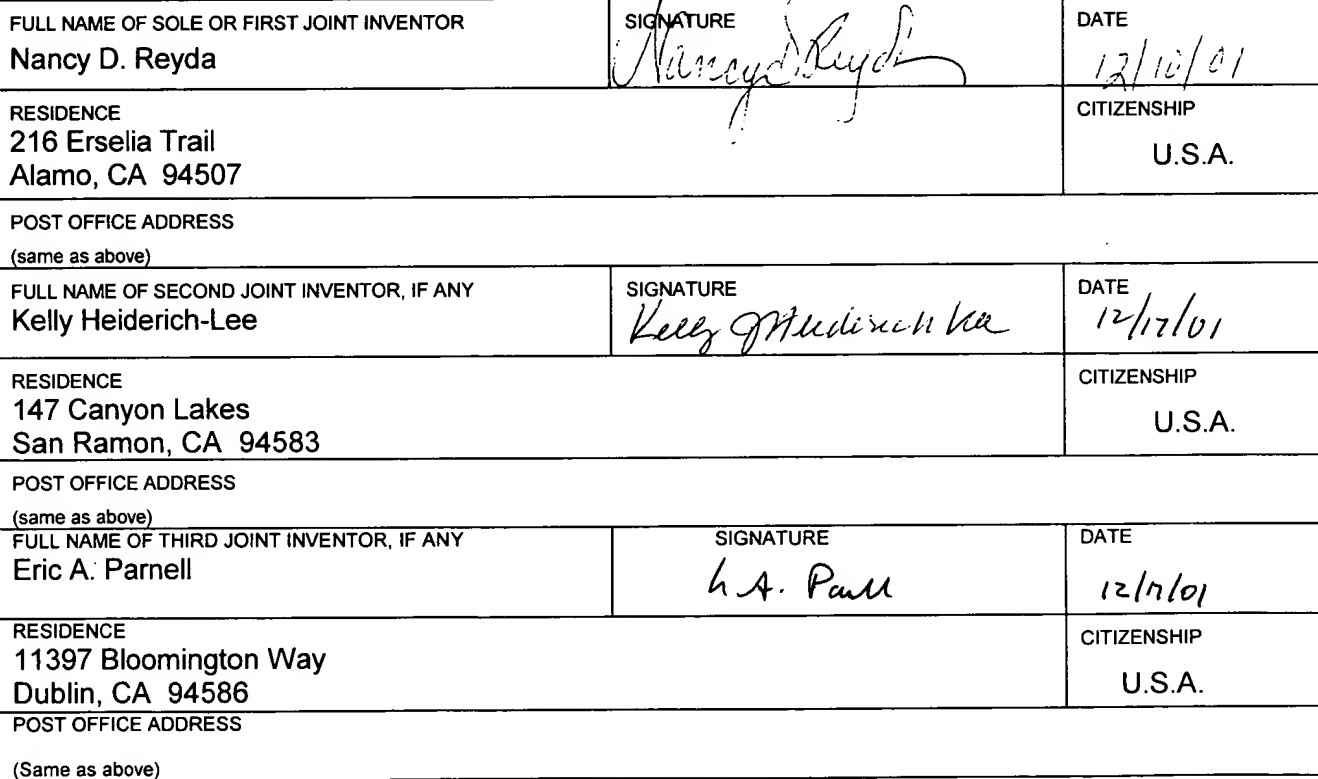 FULL NAME OF SOLE OR FIRST JOINT INVENTOR
Nancy D. Reyda
SIGNATURE
Nancy D. Reyda
DATE
12/10/01
RESIDENCE
216 Erselia Trail
Alamo, CA 94507
CITIZENSHIP
U.S.A.
POST OFFICE ADDRESS
(same as above)
FULL NAME OF SECOND JOINT INVENTOR, IF ANY
Kelly Heiderich-Lee
SIGNATURE
Kelly J Heiderich Lee
DATE
12/17/01
RESIDENCE
147 Canyon Lakes
San Ramon, CA 94583
CITIZENSHIP
U.S.A.
POST OFFICE ADDRESS
(same as above)
FULL NAME OF THIRD JOINT INVENTOR, IF ANY
Eric A. Parnell
SIGNATURE
A. Parnell
DATE
12/17/01
RESIDENCE
11397 Bloomington Way
Dublin, CA 94586
CITIZENSHIP
U.S.A.
POST OFFICE ADDRESS
(Same as above)